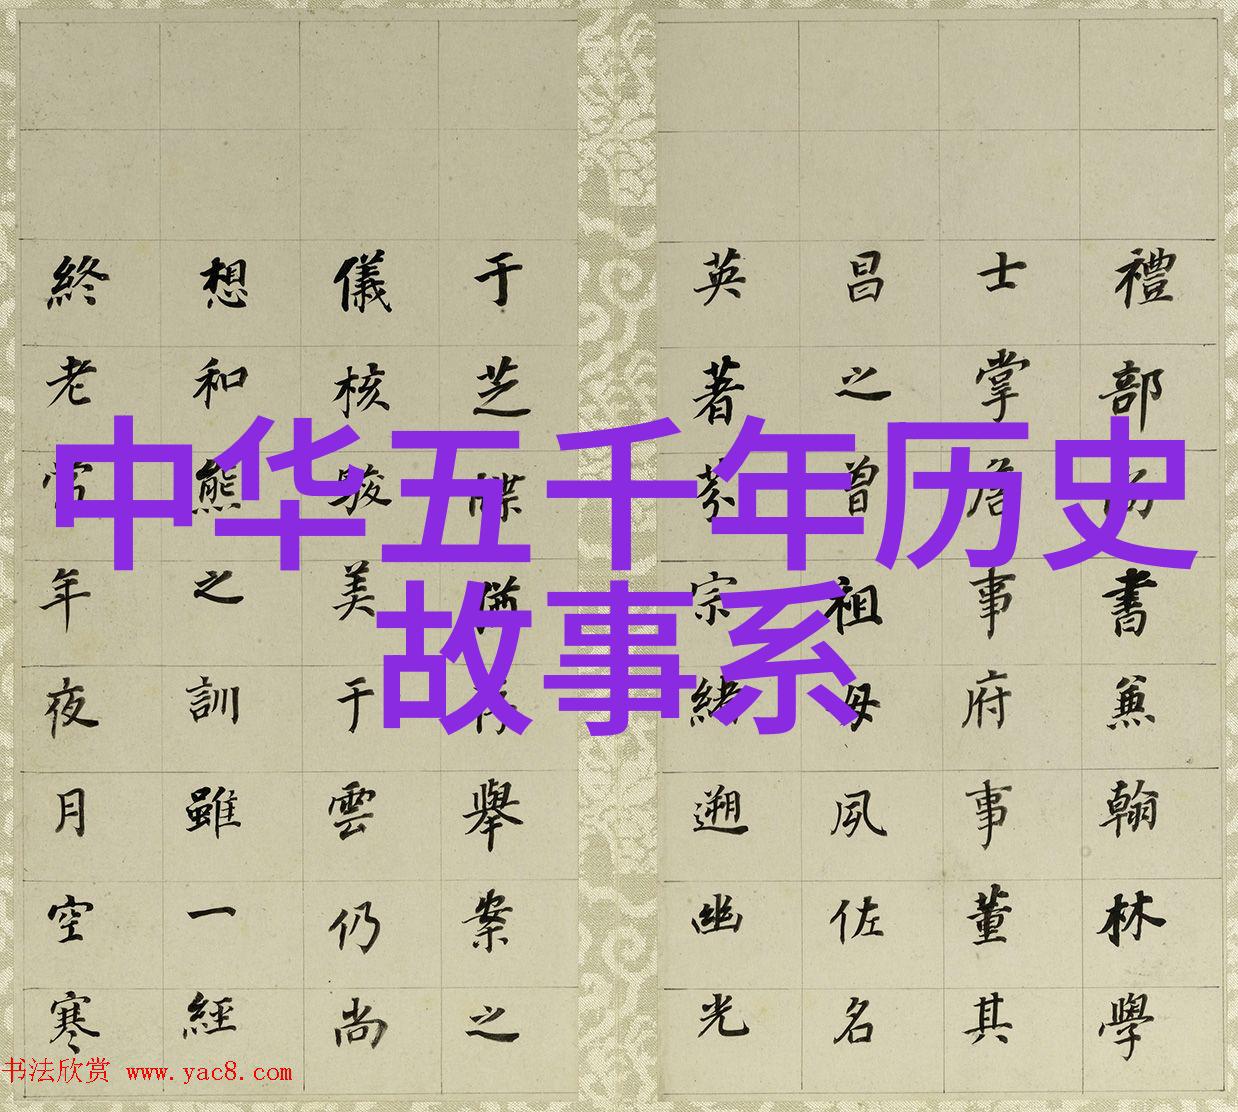 中华五千年历史
故事系
禮部書兼翰林學
士掌詹事府事董其
昌之曾祖母夙佐名
英著芬宗緒遡幽光
于芝牒舉案之
儀核駿美于雲仍尚
想和熊之訓雖一經
終老年夜月空寒
书法欣赏 www.yac8.com